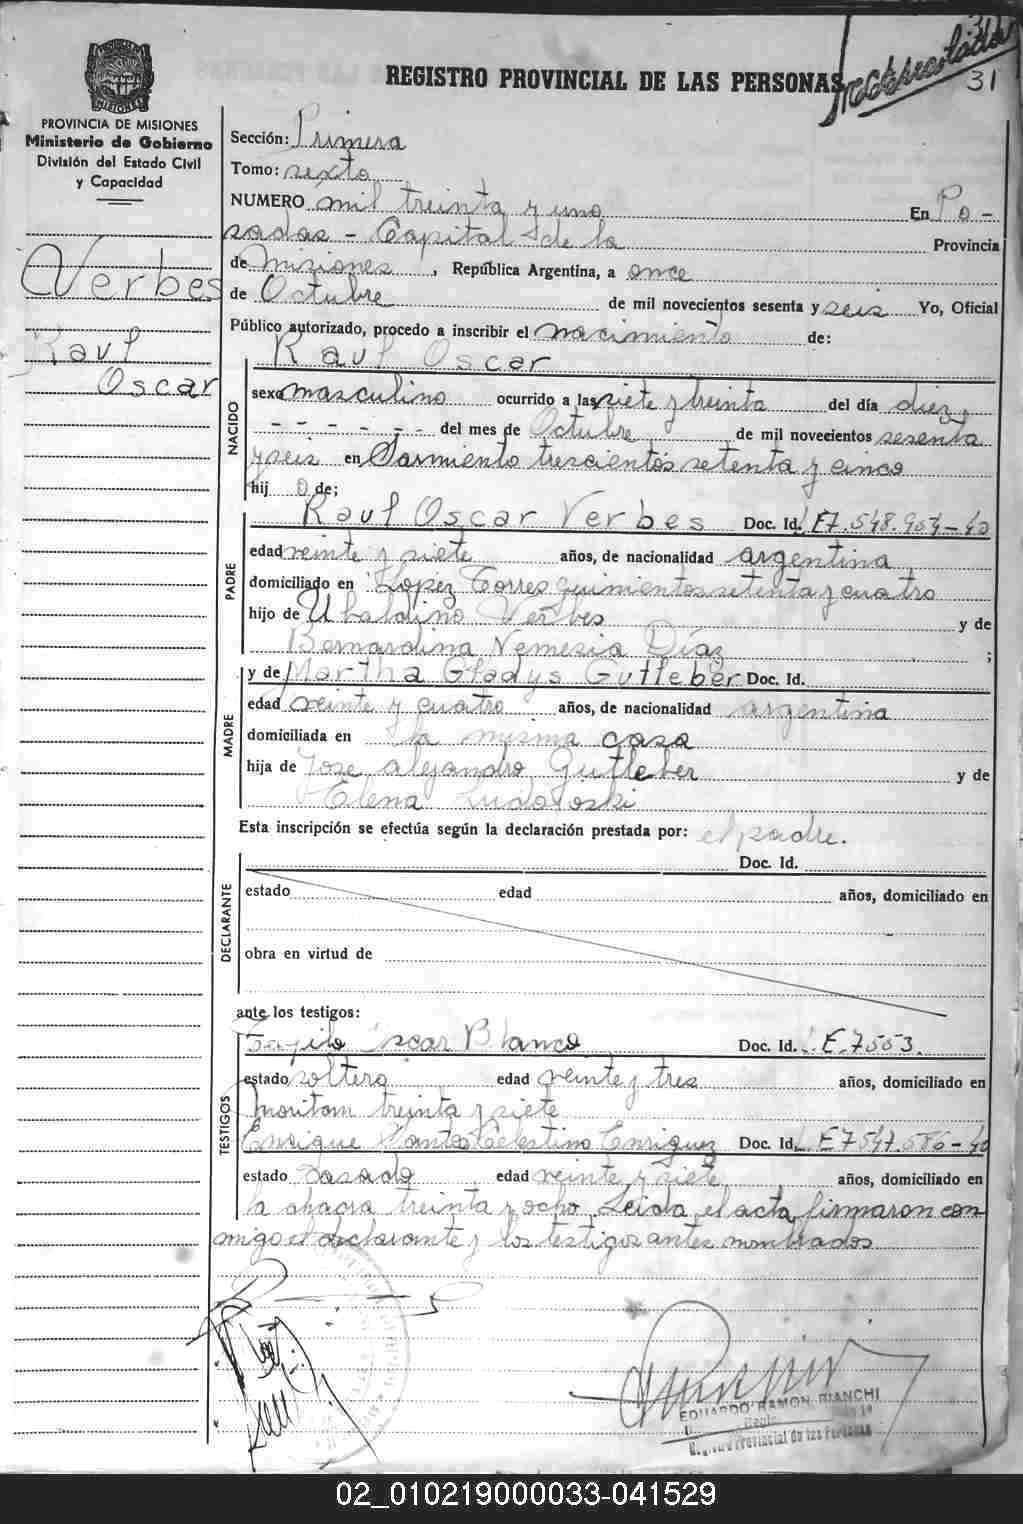 REGISTRO PROVINCIAL DE LAS PERSONAS
31
PROVINCIA DE MISIONES
Ministerio de Gobierno
División del Estado Civil
y Capacidad
Verbes
Raul
Oscar
Sección: Primera
Tomo: sexto
NUMERO mil treinta y uno En Po-
sadas - Capital de la Provincia
de Misiones, República Argentina, a once
de Octubre de mil novecientos sesenta y seis Yo, Oficial
Público autorizado, procedo a inscribir el nacimiento de:
Raul Oscar
NACIDO
sexo masculino ocurrido a las siete y treinta del día diez
- - - - - - del mes de Octubre de mil novecientos sesenta
y seis en Sarmiento trescientos setenta y cinco
hij o de;
PADRE
Raul Oscar Verbes Doc. Id. L E 7.548.954-40
edad veinte y siete años, de nacionalidad argentina
domiciliado en Lopez Torres quinientos setenta y cuatro
hijo de Ubaldino Verbes y de
Bernardina Nemesia Díaz ;
MADRE
y de Martha Gladys Gutleber Doc. Id.
edad veinte y cuatro años, de nacionalidad argentina
domiciliada en la misma casa
hija de Jose Alejandro Gutleber y de
Elena
Esta inscripción se efectúa según la declaración prestada por: el padre.
DECLARANTE
Doc. Id.
estado edad años, domiciliado en
obra en virtud de
ante los testigos:
TESTIGOS
Oscar Blanco Doc. Id. L E. 7553.
estado soltero edad veinte y tres años, domiciliado en
treinta y siete
Enrique Celestino Enriquez Doc. Id. L. E 7547.586-40
estado Casado edad veinte y siete años, domiciliado en
la chacra treinta y ocho. Leida el acta, firmaron con-
migo el declarante y los testigos antes nombrados
EDUARDO RAMON BIANCHI
Registro Provincial de las Personas
02_010219000033-041529